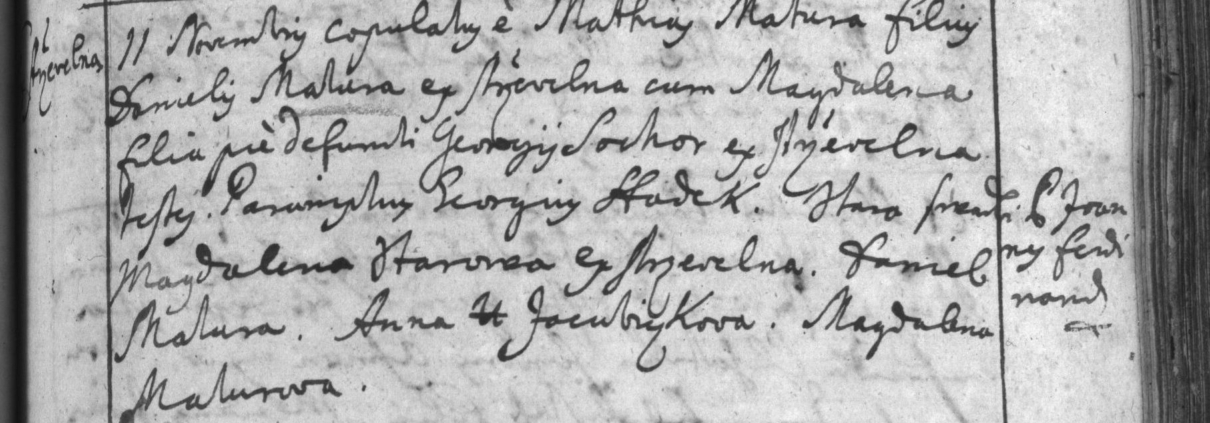 Strzevelna
11 Novembris copulatus è Mathias Matura filius
Danielis Matura ex Strzevelna cum Magdalena
filia piè defuncti Georgij Sochor ex Strzevelna
Testes. Paranymphus Georgius Hadek. Stara
Magdalena Starowa ex Strzevelna. Daniel
Matura. Anna Jacubiczkova. Magdalena
Maturova.
P Joan
nes Ferdi
nand